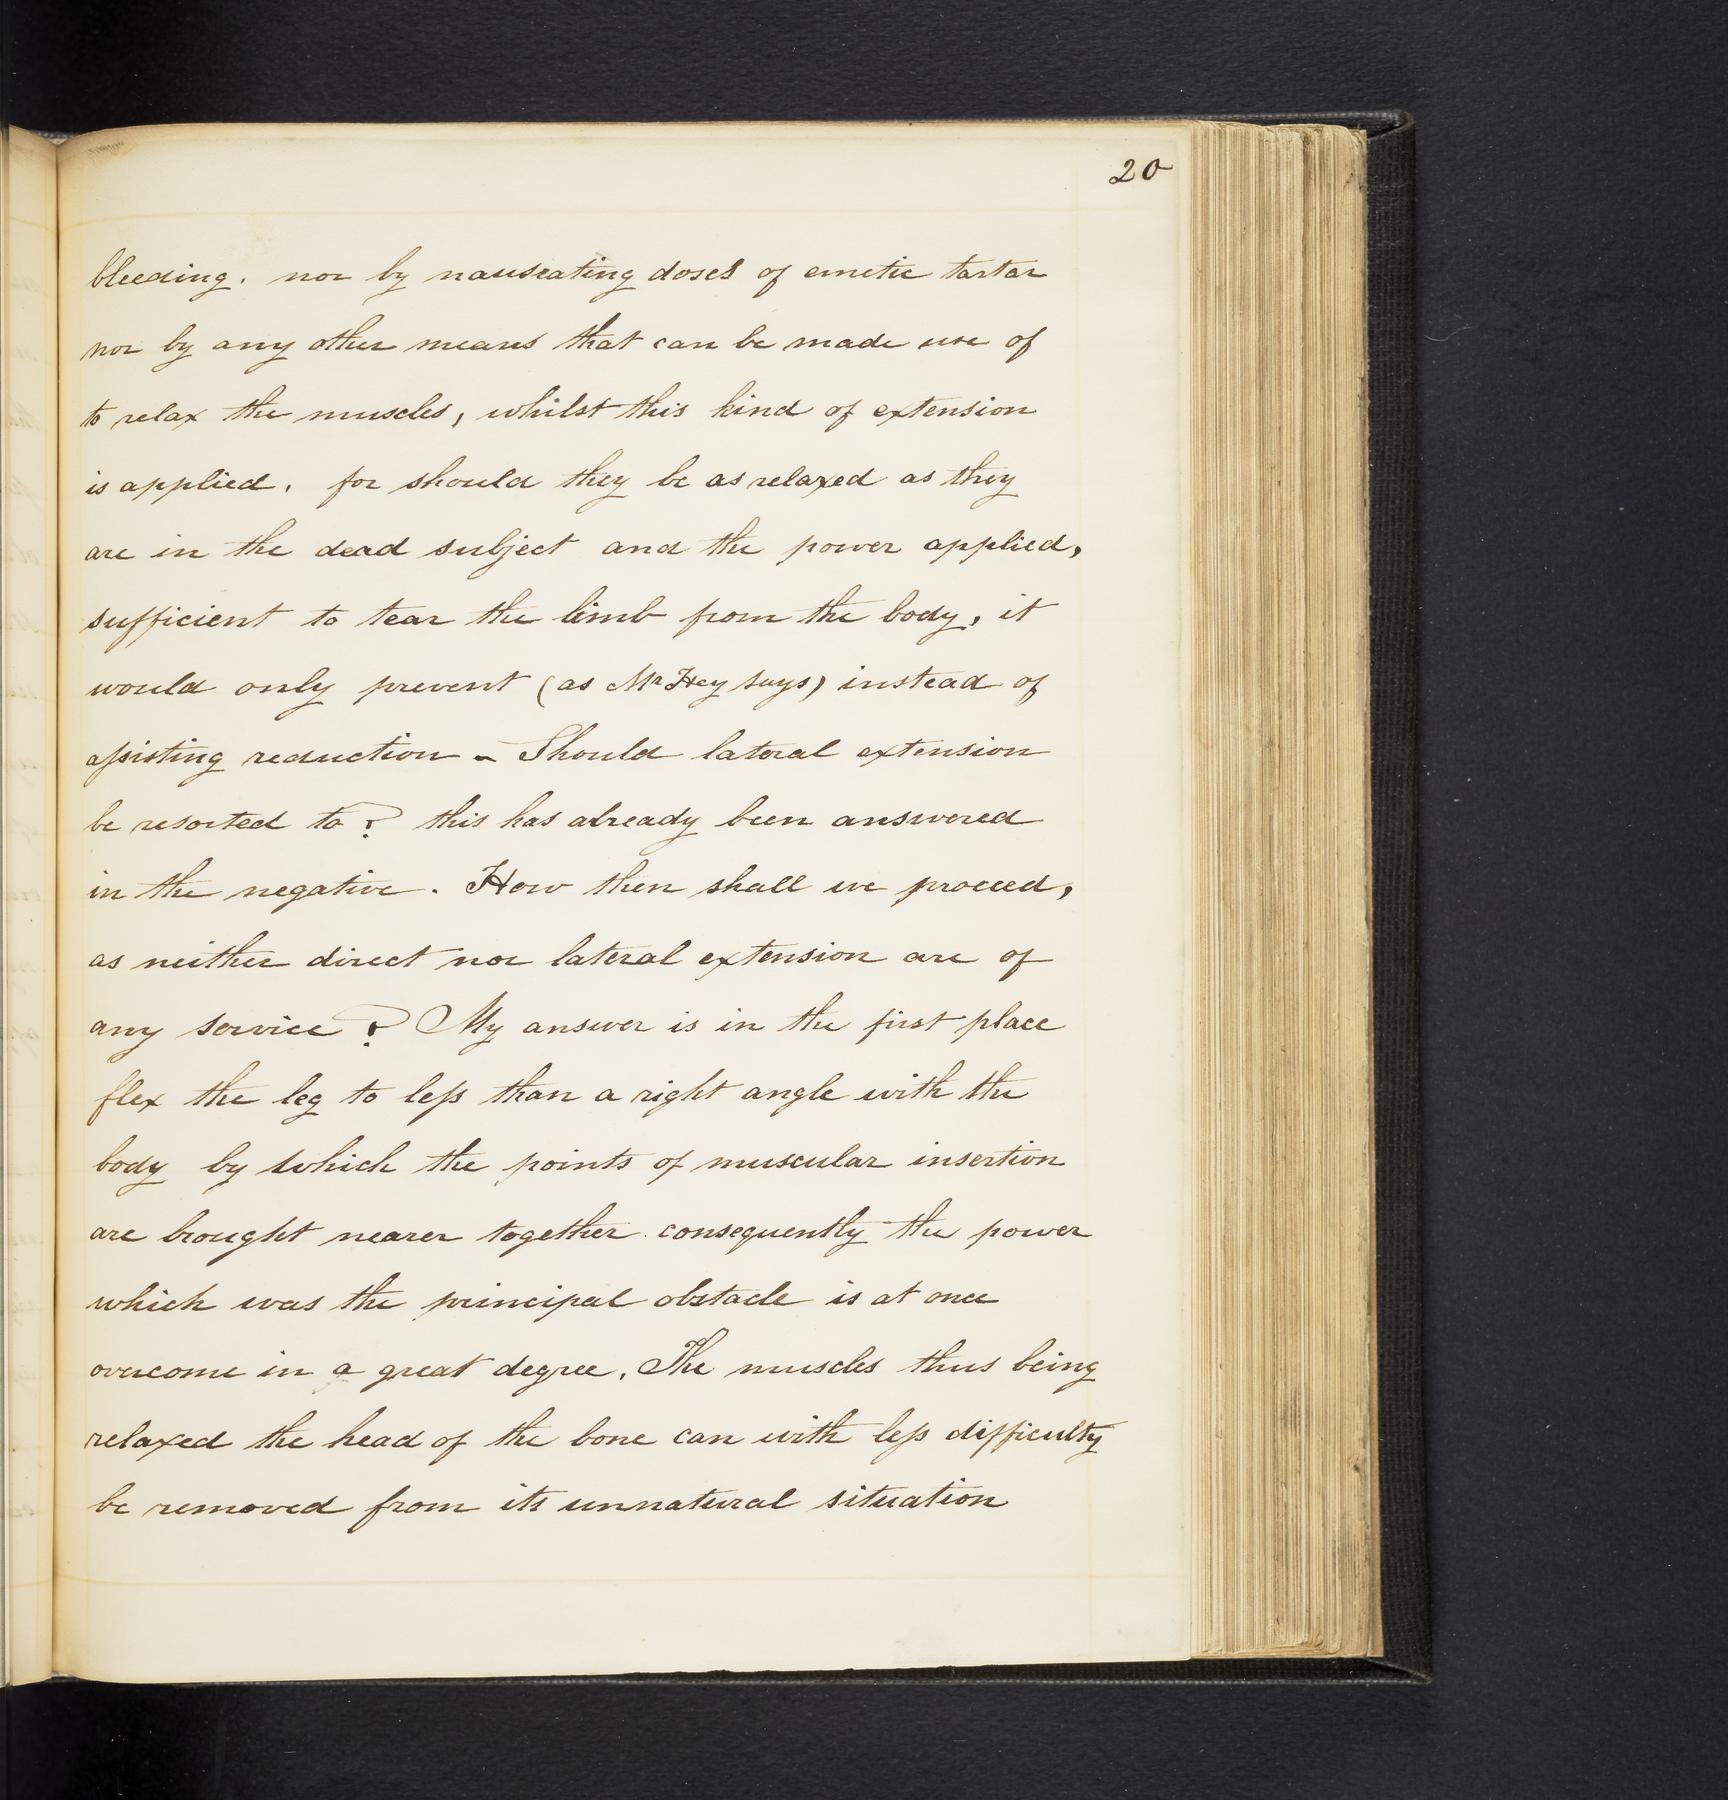 20
bleeding. nor by nauseating doses of emetic tartar
nor by any other means that can be made use of
to relax the muscles, whilst this kind of extension
is applied. for should they be as relaxed as they
are in the dead subject and the power applied,
sufficient to tear the limb from the body, it
would only prevent (as Mr Hey says) instead of
aſsisting reduction - Should lateral extension
be resorted to? this has already been answered
in the negative. How then shall we proceed,
as neither direct nor lateral extension are of
any service? My answer is in the first place
flex the leg to leſs than a right angle with the
body by which the points of muscular insertion
are brought nearer together. consequently the power
which was the principal obstacle is at once
overcome in a great degree. The muscles thus being
relaxed the head of the bone can with leſs difficulty
be removed from its unnatural situation